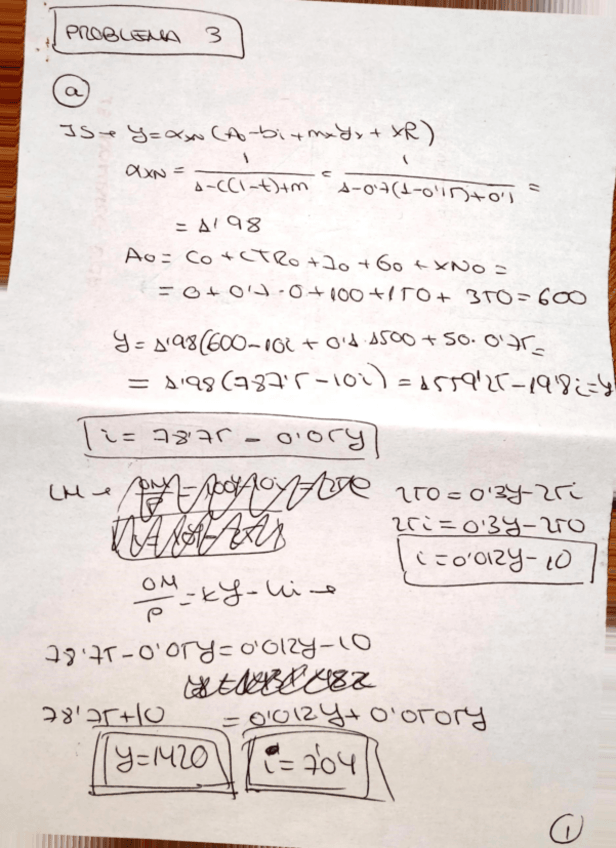 PROBLEMA 3
a
IS→ y=αxN (A0-bi+mxyx+xR)
αXN = 1/1-c(1-t)+m = 1/1-0'7(1-0'15)+0'1 =
= 1'98
A0= C0+cTR0+I0+G0+XN0=
= 0+0'7·0+100+150+350=600
y=1'98(600-10i+0'1·1500+50·0'75=
= 1'98(787'5-10i)=1559'25-19'8i=y
i= 78'75-0'05y
LM→
250=0'3y-25i
25i=0'3y-250
i=0'012y-10
OM/P=ky-hi→
78'75-0'05y=0'012y-10
78'75+10 =0'012y+0'0505y
y=1420 i=7'04
1